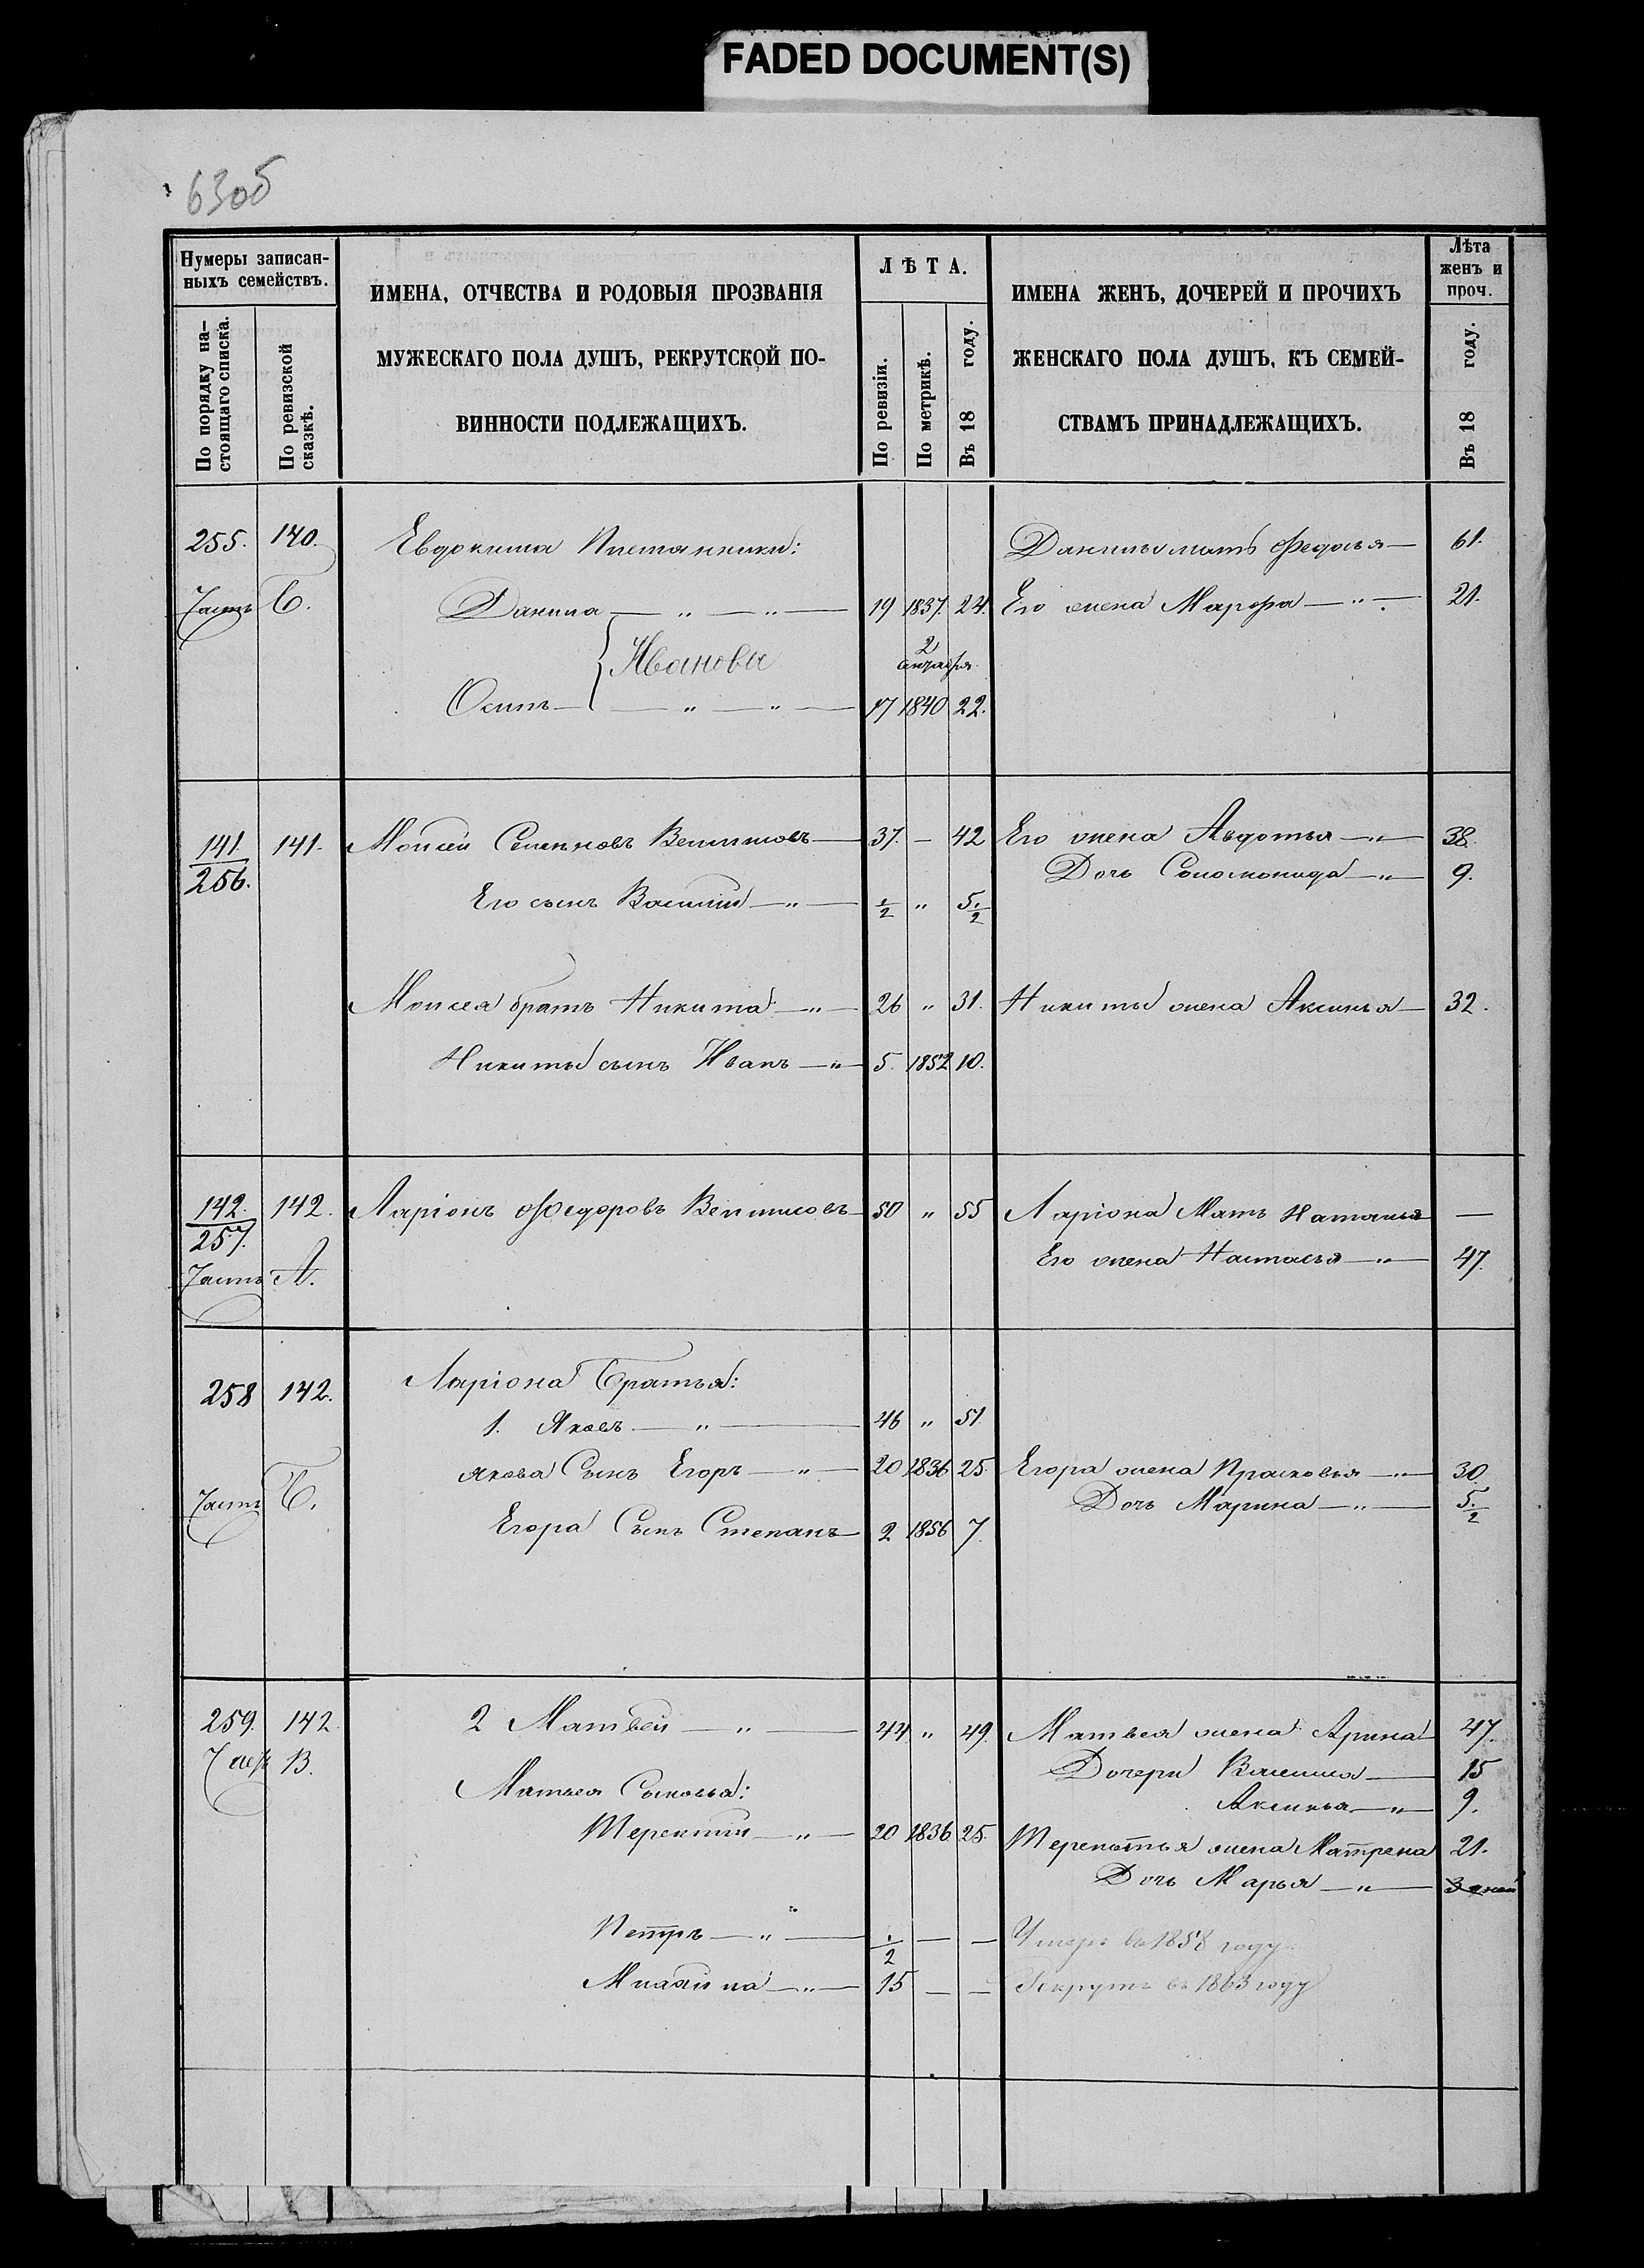 FADED DOCUMENT(S)
63об
Нумеры записан-
ныхъ семействъ.
По порядку на-
стоящаго списка.
По ревизской
сказкѣ.
ИМЕНА, ОТЧЕСТВА И РОДОВЫЯ ПРОЗВАНІЯ
МУЖЕСКАГО ПОЛА ДУШЪ, РЕКРУТСКОЙ ПО-
ВИННОСТИ ПОДЛЕЖАЩИХЪ.
ЛѢТА.
По ревизіи.
По метрикѣ.
Въ 18 году.
ИМЕНА ЖЕНЪ, ДОЧЕРЕЙ И ПРОЧИХЪ
ЖЕНСКАГО ПОЛА ДУШЪ, КЪ СЕМЕЙ-
СТВАМЪ ПРИНАДЛЕЖАЩИХЪ.
Лѣта
женъ и
проч.
Въ 18 году.
255. 140. Евдокима Племянники: Данилы мать Федосья — 61.
Часть Б. Данила — " — " — 19 1837. 24. Его жена Марфа — " — 21.
Ивановы 2
октября
Осипъ — " — " — 17 1840 22.
141. 141. Моисей Семеновъ — 37. — 42 Его жена Авдотья — " — 38.
256. Дочь Соломонида — " — 9.
Его сынъ Василий — " — 1/2 " 5 1/2
Моисея братъ Никита — " — 26 " 31. Никиты жена Аксинья — 32.
Никиты сынъ Иванъ — " — 5. 1852 10.
142. 142. Ларіонъ Федоровъ — 50 " 55 Ларіона Мать Наталья —
257. Его жена Настасья — " — 47.
Часть А.
258 142. Ларіона Братья:
1. Яковъ — " — 46 " 51.
Якова Сынъ Егоръ — " — 20 1836 25. Егора жена Прасковья — " — 30
Часть Б. Дочь Марина — " — 5 1/2
Егора Сынъ Степанъ — 2 1856 7.
259. 142. 2 Матвей — " — 44 " 49. Матвея жена Арина 47.
Часть В. Дочери Василиса — 15
Матвея Сыновья: Аксинья — " — 9.
Терентий — " — 20 1836 25. Терентья жена Матрена 21.
Дочь Марья — " —
Петръ — " — 1/2 — — Умеръ въ 1858 году.
15 — — Рекрутъ въ 1863 году